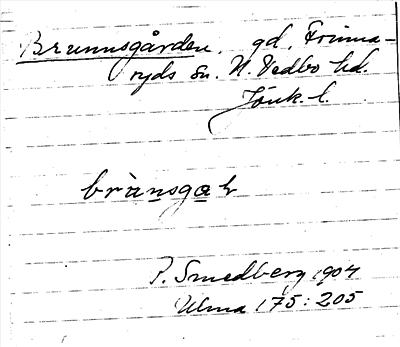 Brunnsgården, gd, Frinna-
ryds sn. N. Vedbo hd.
Jönk. l.
brùnsga
P. Smedberg 1904
Ulma 175:205